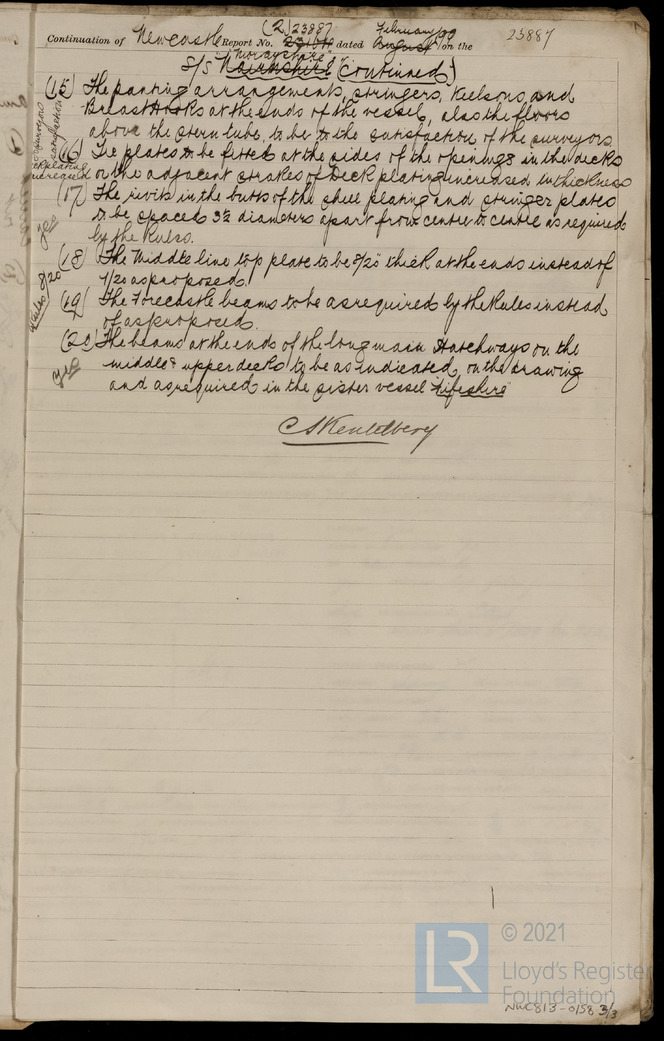 (2) 23887 February 99
Continuation of Newcastle Report No. dated August on the 23887
"Morayshire"
S/S Nairnshire (Continued)
(15) The panting arrangements, stringers, Keelsons and
Breasthooks at the ends of the vessel, also the floors
above the stern tube, to be to the satisfaction of the surveyors
surveyors satisfaction
(16) Tie plates to be fitted at the sides of the openings in the decks
or the adjacent strakes of Deck plating increased in thickness
Deck plating as required
(17) The rivets in the butts of the shell plating and stringer plates
to be spaced 3½ diameters apart from centre to centre as required
by the Rules.
Yes
(18) The Middle line top plate to be 8/20 thick at the ends instead of
7/20 as proposed.
8/20
(19) The Forecastle beams to be as required by the Rules instead
of as proposed.
Rules
(20) The beams at the ends of the long main Hatchways on the
middle & upper decks to be as indicated on the drawing
and as required in the sister vessel Fifeshire
Yes
LR
© 2021
Lloyd's Register
Foundation
NWC813-0158 3/3